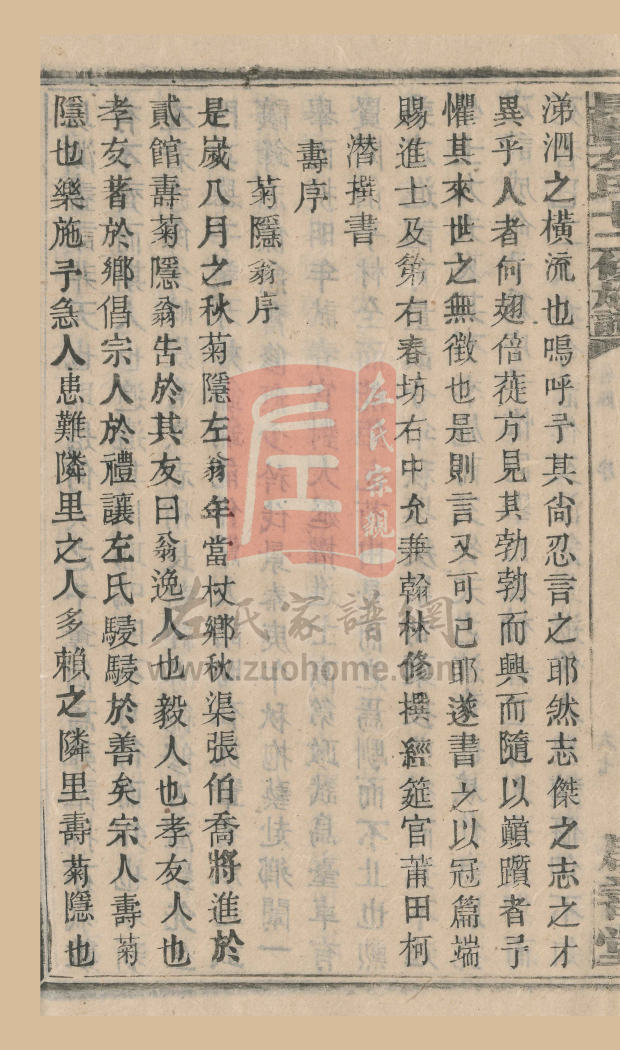 涕泗之橫流也嗚呼予其尙忍言之耶然志傑之志之才
異乎人者何翅倍蓰方見其勃勃而興而隨以巔躓者予
懼其來世之無徵也是則言又可已耶遂書之以冠篇端
賜進士及第右春坊右中允兼翰林修撰經筵官莆田柯
潛撰書
壽序
菊隱翁序
是嵗八月之秋菊隱左翁年當杖鄉秋渠張伯喬將進於
貳館壽菊隱翁告於其友曰翁逸人也毅人也孝友人也
孝友著於鄉倡宗人於禮讓左氏駸駸於善矣宗人壽菊
隱也樂施予急人患難隣里之人多賴之隣里壽菊隱也
左氏宗親
左氏家譜網
www.zuohome.com